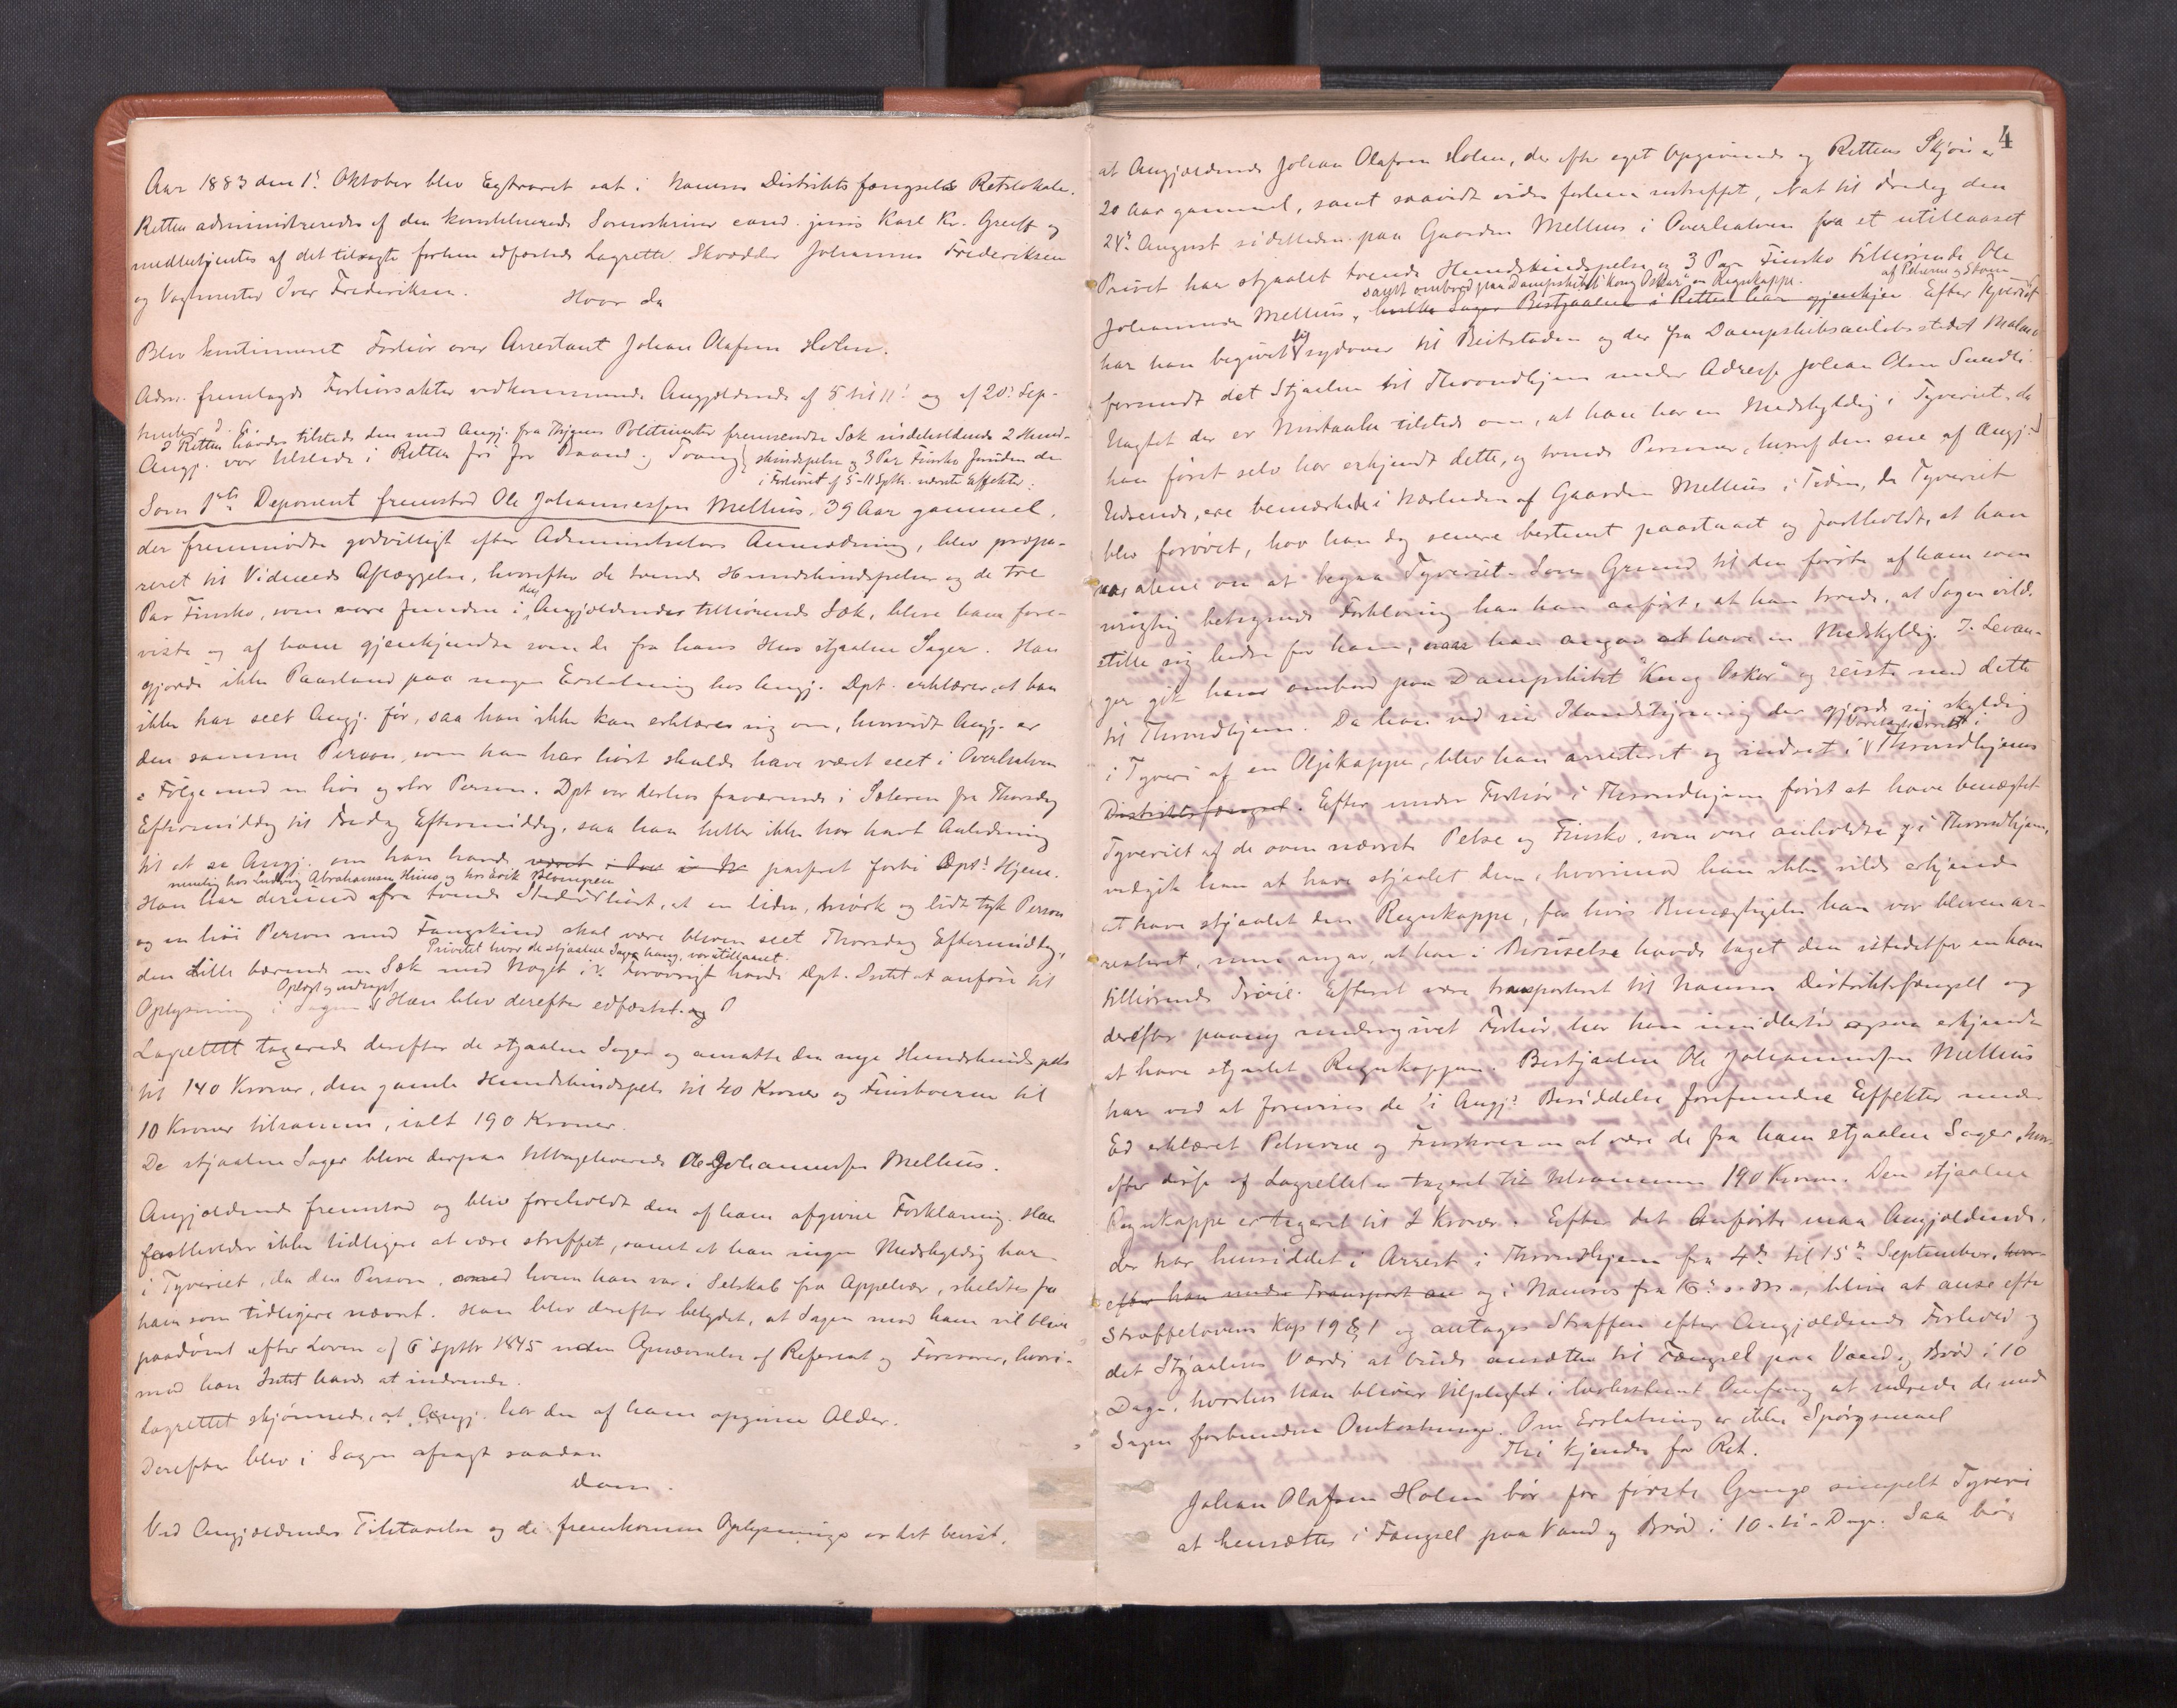 Aar 1883 den 1ste Oktober blev Extraret sat i Namsos Distriktsfængsels Retslokale.
Retten administreredes af den konstituerede Sorenskriver cand. juris Karl Kr. Greiff og
medbetjentes af det tilsagte forhen edfæstede Lagrette Skrædder Johannes Frederiksen
og Vagtmester Iver Frederiksen.
Hvor da
Blev kontinueret Forhør over Arrestant Johan Olafsen Holm.
Adm. fremlagde Forhørsakter vedkommende Angjældende af 5 til 11 og af 20 Sep-
tember d. A.
I Retten havdes tilstede den med Angj. fra Thjems Politimester fremsendte Sæk indeholdende 2 Hund-
Angj. var tilstede i Retten fri for Baand og Tvang
skindspelse og 3 Par Finsko foruden de
i Forhøret af 5-11 Septbr. nævnte Effekter:
Som 1ste Deponent fremstod Ole Johannessen Mellius, 39 Aar gammel,
der fremmødte godvilligt efter Administrators Anmodning, blev præpa-
reret til Vidneeds Aflæggelse, hvorefter de tvende Hundskindspelse og de tre
Par Finsko, som vare fundne i den Angjældende tilhørende Sæk, bleve ham fore-
viste og af ham gjenkjendte som de fra hans Hus stjaalne Sager. Han
gjorde ikke Paastand paa nogen Erstatning hos Angj. Dpt. erklærer, at han
ikke har seet Angj. før, saa han ikke kan erklære sig om, hvorvidt Angj. er
den samme Person, som han har hørt skulde have været seet i Overhalven
i Følge med en høi og stor Person. Dpt var derhos fraværende i Sæteren fra Thorsdag
Eftermiddag til Fredag Eftermiddag, saa han heller ikke har havt Anledning
til at se Angj. om han havde været i Ove i N passeret forbi Dpts Hjem.
nemlig hos Ludvig Abrahamsen Himo og hos Erik Blomgren
Han har derimod fra tvende Steder hørt, at en liden, mørk og lidt tyk Person
og en høi Person med Fangskind skal være bleven seet Thorsdag Eftermiddag,
Privetet hvor de stjaalne Sager hang, var utillaaset.
den Lille bærende en Sæk med Noget i. Forøvrigt havde Dpt. Intet at anføre til
Oplæst og vedtaget
Oplysning i Sagen. Han blev derefter edfæstet. og
Lagrettet taxerede derefter de stjaalne Sager og ansatte den nye Hundskindspels
til 140 Kroner, den gamle Hundskindspels til 40 Kroner og Finskoene til
10 Kroner tilsammen, ialt 190 Kroner.
De stjaalne Sager bleve derpaa tilbageleverede Ole Johannessen Mellius.
Angjældende fremstod og blev foreholdt den af ham afgivne Forklaring. Han
fastholder ikke tidligere at være straffet, samt at han ingen Medskyldig har
i Tyveriet, da den Person, med hvem han var i Selskab fra Appelvær, skiltes fra
ham som tidligere nævnt. Han blev derefter betydet, at Sagen mod ham vil blive
paadømt efter Loven af 6 Septbr 1845 uden Opnævnelse af Referent og Forsvarer, hvori-
mod han Intet havde at indvende.
Lagrettet skjønnede, at Angj. har den af ham opgivne Alder.
Derefter blev i Sagen afsagt saadan
Dom.
Ved Angjældendes Tilstaaelse og de fremkomne Oplysninger er det bevist,
4
at Angjældende Johan Olafsen Holm, der efter eget Opgivende og Rettens Skjøn er
20 Aar gammel, samt saavidt vides forhen ustraffet, Nat til Fredag den
24de August sidstleden paa Gaarden Mellius i Overhalven fra et utillaaset
Privet har stjaalet tvende Hundskindspelse og 3 Par Finsko tilhørende Ole
samt ombord paa Dampskibet "Kong Oskar" en Regnkappe. af Pelsene og Skoene
Johannessen Mellius, hvilke Sager Bestjaalne i Retten har gjenkjen Efter Tyveriet
har han begivet sig sydover til Beitstaden og der fra Dampskibsanløbsstedet Malm
forsendt det Stjaalne til Throndhjem under Adresse Johan Olsen Sundli.
Uagtet der er Mistanke tilstede om, at han har en Medskyldig i Tyveriet, da
han først selv har erkjendt dette, og tvende Personer, hvoraf den ene af Angj.s
Udseende, ere bemærkede i Nærheden af Gaarden Mellius i Tiden, da Tyveriet
blev forøvet, hav han dog senere bestemt paastaaet og fastholdt, at han
var alene om at begaa Tyveriet. Som Grund til den første af ham som
urigtig betegnede Forklaring har han anført, at han troede, at Sagen vilde
stille sig bedre for ham, naar han angav at have en Medskyldig. I Levan-
ger gik han ombord paa Dampskibet "Kong Oskar" og reiste med dette
til Throndhjem. Da han ved sin Ilandstigning der gjorde sig skyldig
i Tyveri af en Oljekappe, blev han arresteret og indsat i Varetægtsarrest i Throndhjems
Distriktsfængsel. Efter under Forhør i Throndhjem først at have benægtet
Tyveriet af de ovennævnte Pelse og Finsko, som vare anholdte i Throndhjem,
vedgik han at have stjaalet dem, hvorimod han ikke vilde erkjende
at have stjaalet den Regnkappe, for hvis Borttagelse han var bleven ar-
resteret, men angav, at han i Bevuselse havde taget den istedetfor en ham
tilhørende Trøie. Efterat være transporteret til Namsos Distriktsfængsel og
derefter paany undergivet Forhør, har han imidlertid ogsaa erkjendt
at have stjaalet Regnkappen. Bestjaalne Ole Johannessen Mellius
har ved at forevises de i Angj.s Besiddelse forefundne Effekter under
Ed erklæret Pelsene og Finskoene at være de fra ham stjaalne Sager, hvor-
efter disse af Lagrettet er taxeret til tilsammen 190 Kroner. Den stjaalne
Regnkappe er taxeret til 2 Kroner. Efter det Anførte maa Angjældende,
der har hensiddet i Arrest i Throndhjem fra 4de til 15de September, hvor-
efter han under Transport og i Namsos fra 16. s. M., blive at anse efter
Straffelovens Kap 19 § 1 og antages Straffen efter Angjældendes Forhold og
det Stjaalnes Værdi at burde ansættes til Fængsel paa Vand og Brød i 10
Dage, hvorhos han bliver tilpligtet i lovbestemt Omfang at udrede de med
Sagen forbundne Omkostninger. Om Erstatning er ikke Spørgsmaal
Thi kjendes for Ret.
Johan Olafsen Holm bør for første Gangs simpelt Tyveri
at hensættes i Fængsel paa Vand og Brød i 10 - ti - Dage. Saa bør